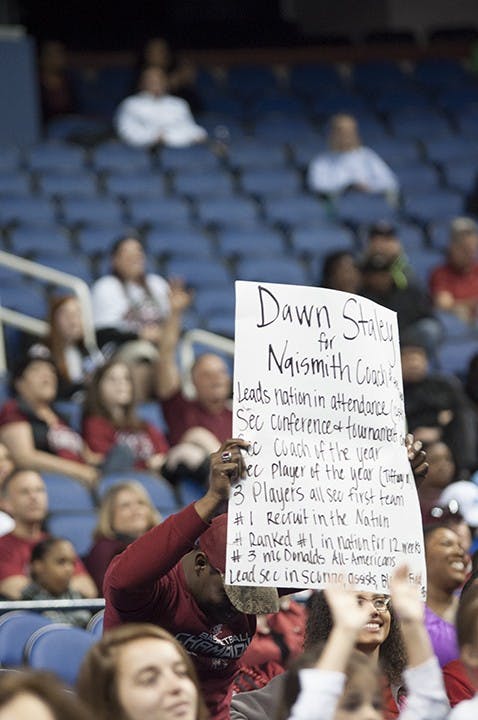 Dawn Staley
for
Naismith Coach
Leads nation in attendance
Sec conference & tournament
Coach of the year
Sec Player of the year (Tiffany
3 Players all sec first team
#1 Recruit in the Nation
# Ranked #1 in nation for 12 weeks
# 3 McDonalds All-Americans
Lead sec in scoring, assists,
BASKETBALL
CHAMPIONS